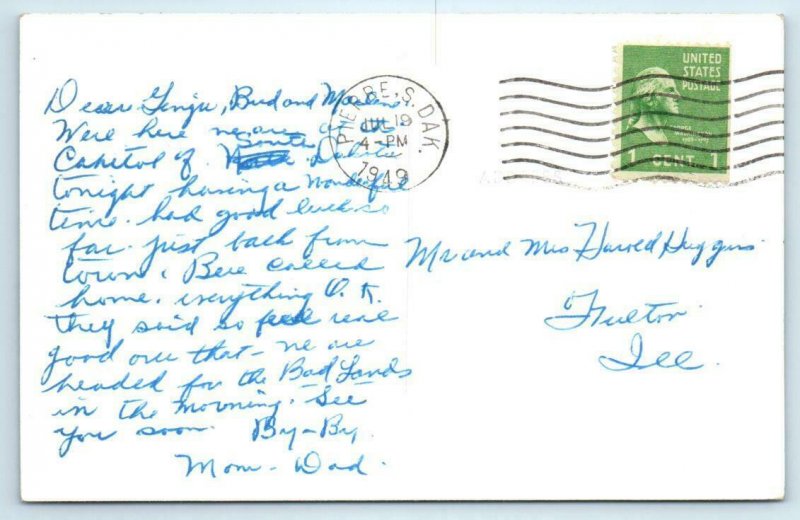 Dear Ginger, Bud and
Were here we are at the
South
Capitol of Dakota
tonight having a wonderful
time. had good luck so
far. just back from
town. Bere called
home. everything O.K.
they said so feel real
good over that - we are
headed for the Bad Lands
in the morning. See
you soon. By-By.
Mom - Dad.
PIERRE, S. DAK
JUL 19
4 - PM
1949
UNITED
STATES
POSTAGE
1 CENT 1
Mr and Mrs Harold Huggins
Fulton
Ill.